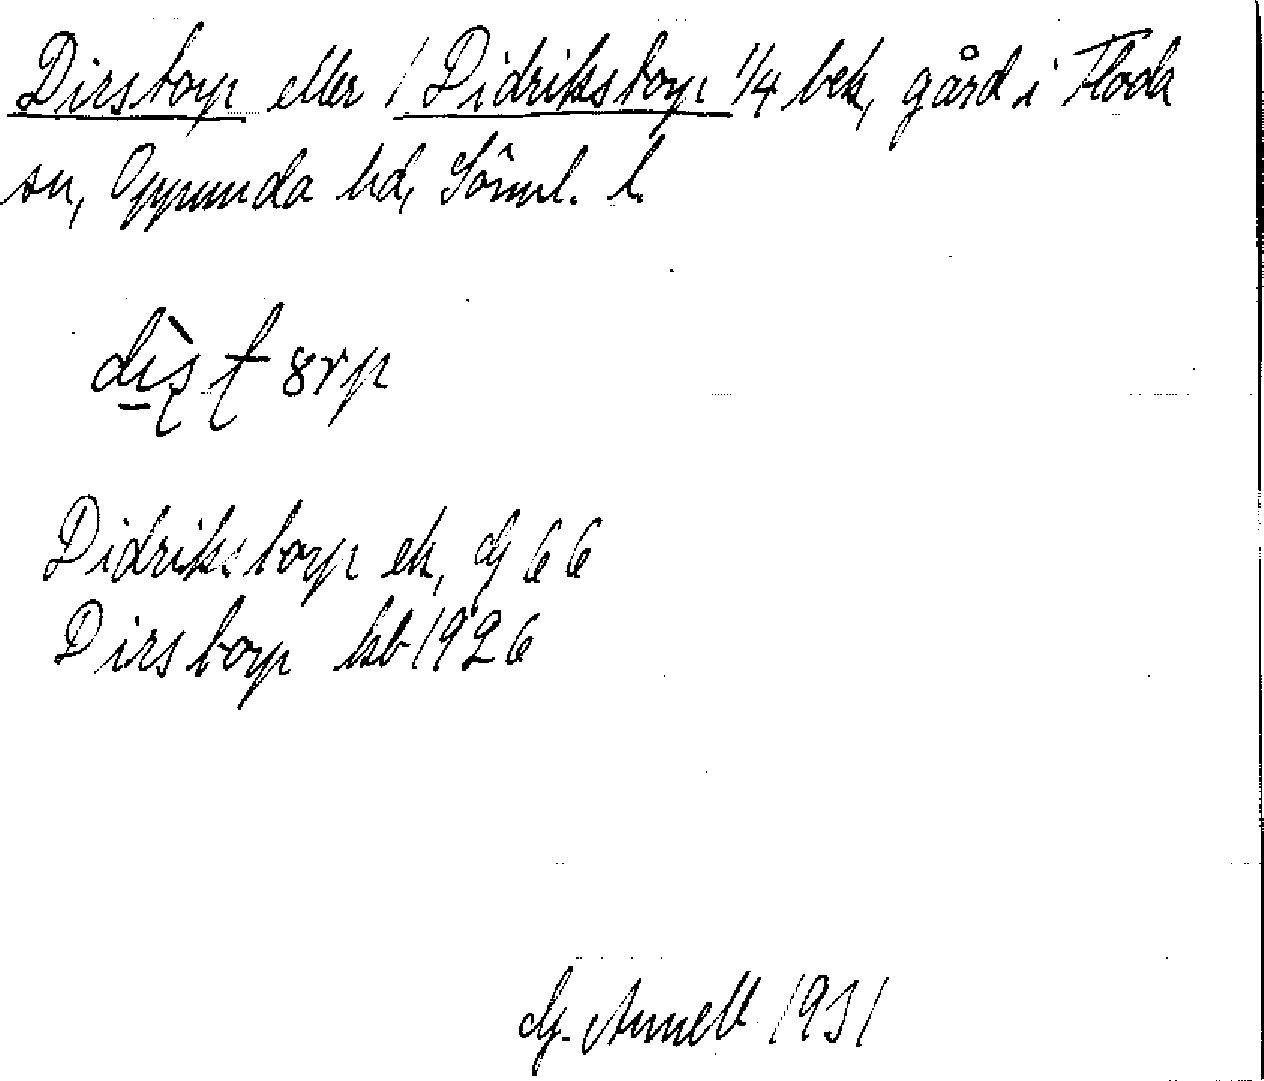 Dirstorp eller / Didrikstorp 1/4 bek, gård i Floda
sn, Oppunda hd, Sörml. l.
Didrikstorp ek,
Dirstorp kb 1926
G. Arnell 1931